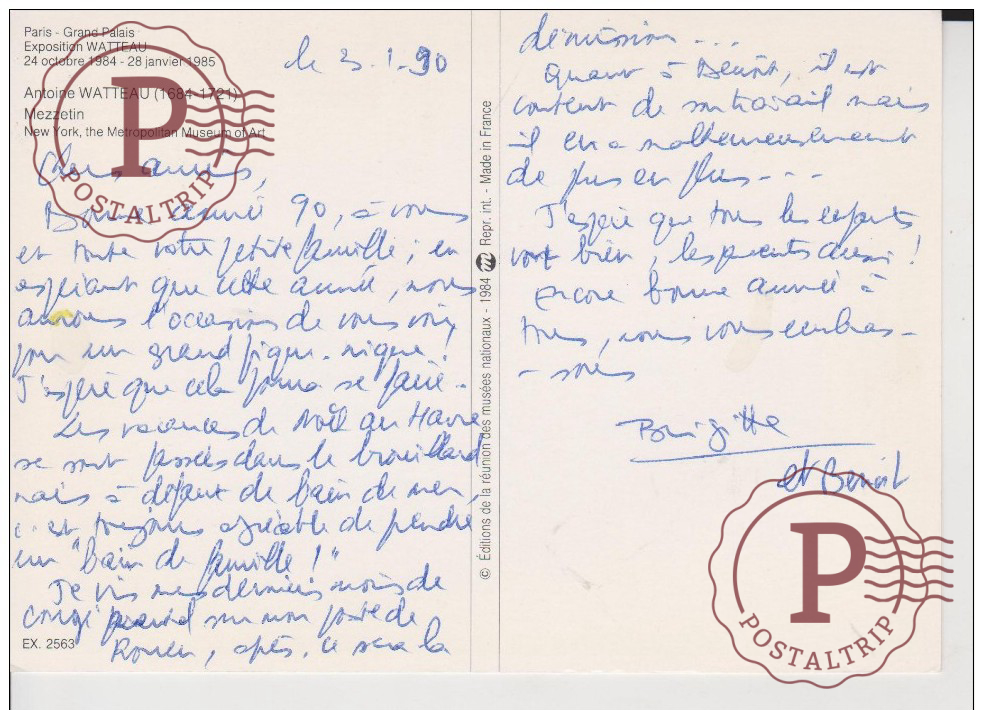 Paris - Grand Palais
Exposition WATTEAU
24 octobre 1984 - 28 janvier 1985
Antoine WATTEAU (1684-1721)
Mezzetin
New York, the Metropolitan Museum of Art
le 3-1-90
Chers amis,
Bonne année 90, à vous
et toute votre petite famille ; en
espérant que cette année, nous
aurons l'occasion de vous voir
pour un grand pique-nique !
J'espère que cela pourra se faire.
Les vacances de Noël au Havre
se sont passées dans le brouillard
mais à défaut de bain de mer,
c'est toujours agréable de prendre
un "bain de famille !"
Je vis mes derniers mois de
congé parental sur mon poste de
Rouen, après, ce sera la
EX. 2563
© Éditions de la réunion des musées nationaux - 1984 Repr. int. - Made in France
démission ...
Quant à Benoît, il est
content de son travail mais
il en a malheureusement
de plus en plus ---
J'espère que tous les enfants
vont bien, les parents aussi !
Encore bonne année à
tous, nous vous embras-
-sons
Brigitte
et Benoît
POSTALTRIP
POSTALTRIP